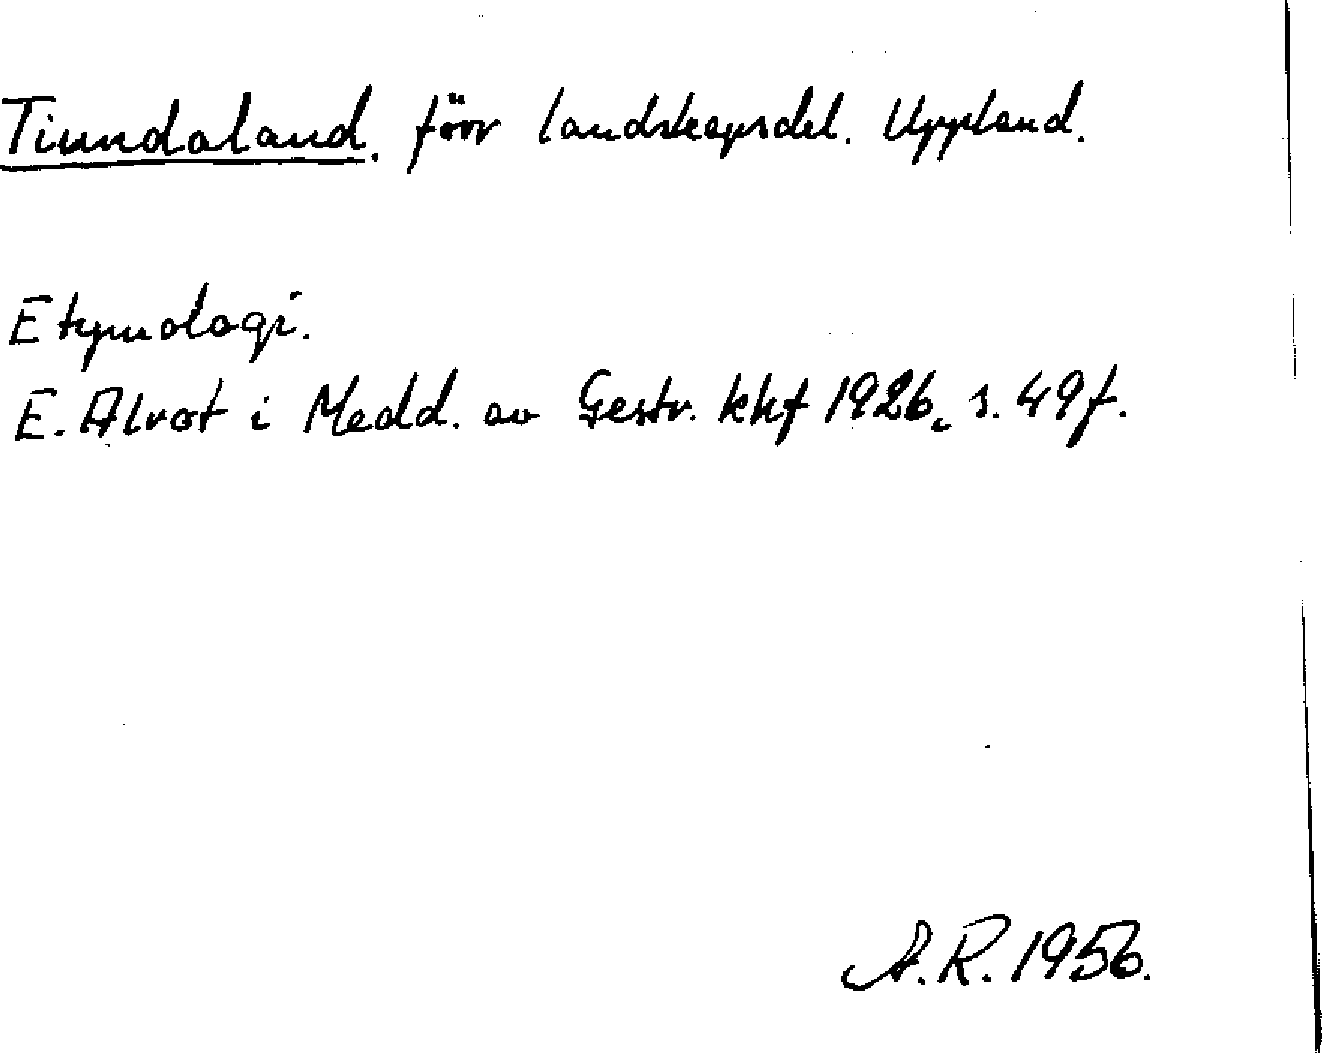 Tiundaland. förr landskapsdel. Uppland.
Etymologi.
E. Alvot i Medd. av Gestr. khf 1926, s. 49 f.
A.R. 1956.